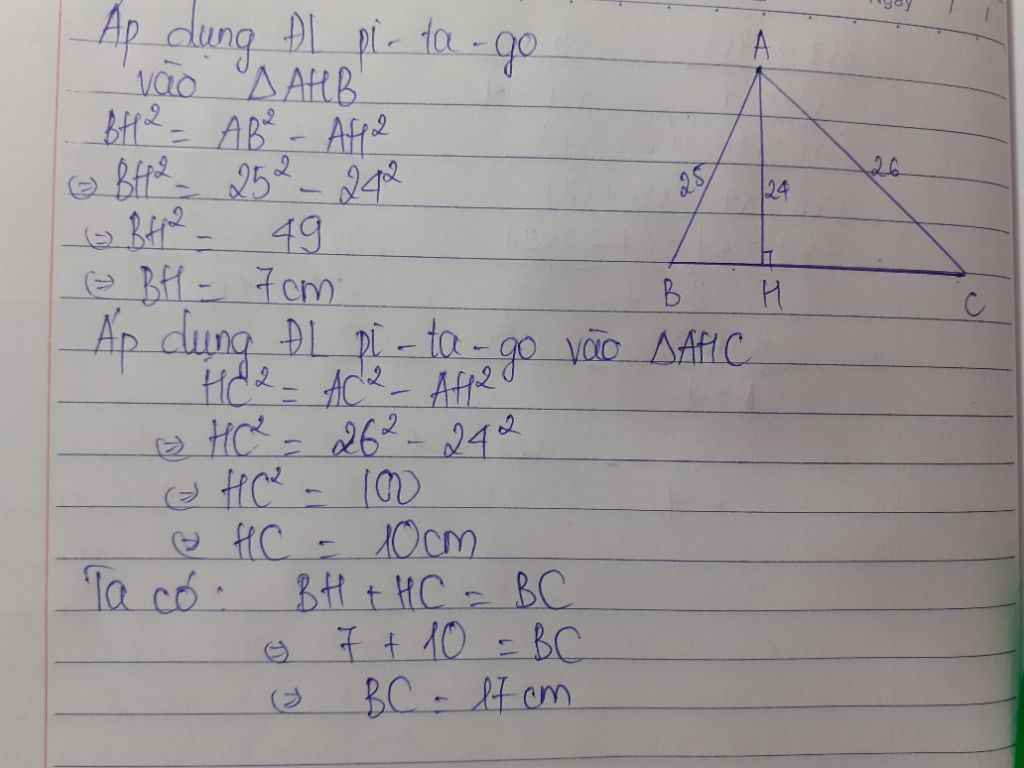 Ngày
Áp dụng ĐL pi-ta-go
vào ΔAHB
BH² = AB² - AH²
⇔ BH² = 25² - 24²
⇔ BH² = 49
⇔ BH = 7cm
Áp dụng ĐL pi-ta-go vào ΔAHC
HC² = AC² - AH²
⇔ HC² = 26² - 24²
⇔ HC² = 100
⇔ HC = 10cm
Ta có: BH + HC = BC
⇔ 7 + 10 = BC
⇔ BC = 17cm
A
25 24 26
B H C